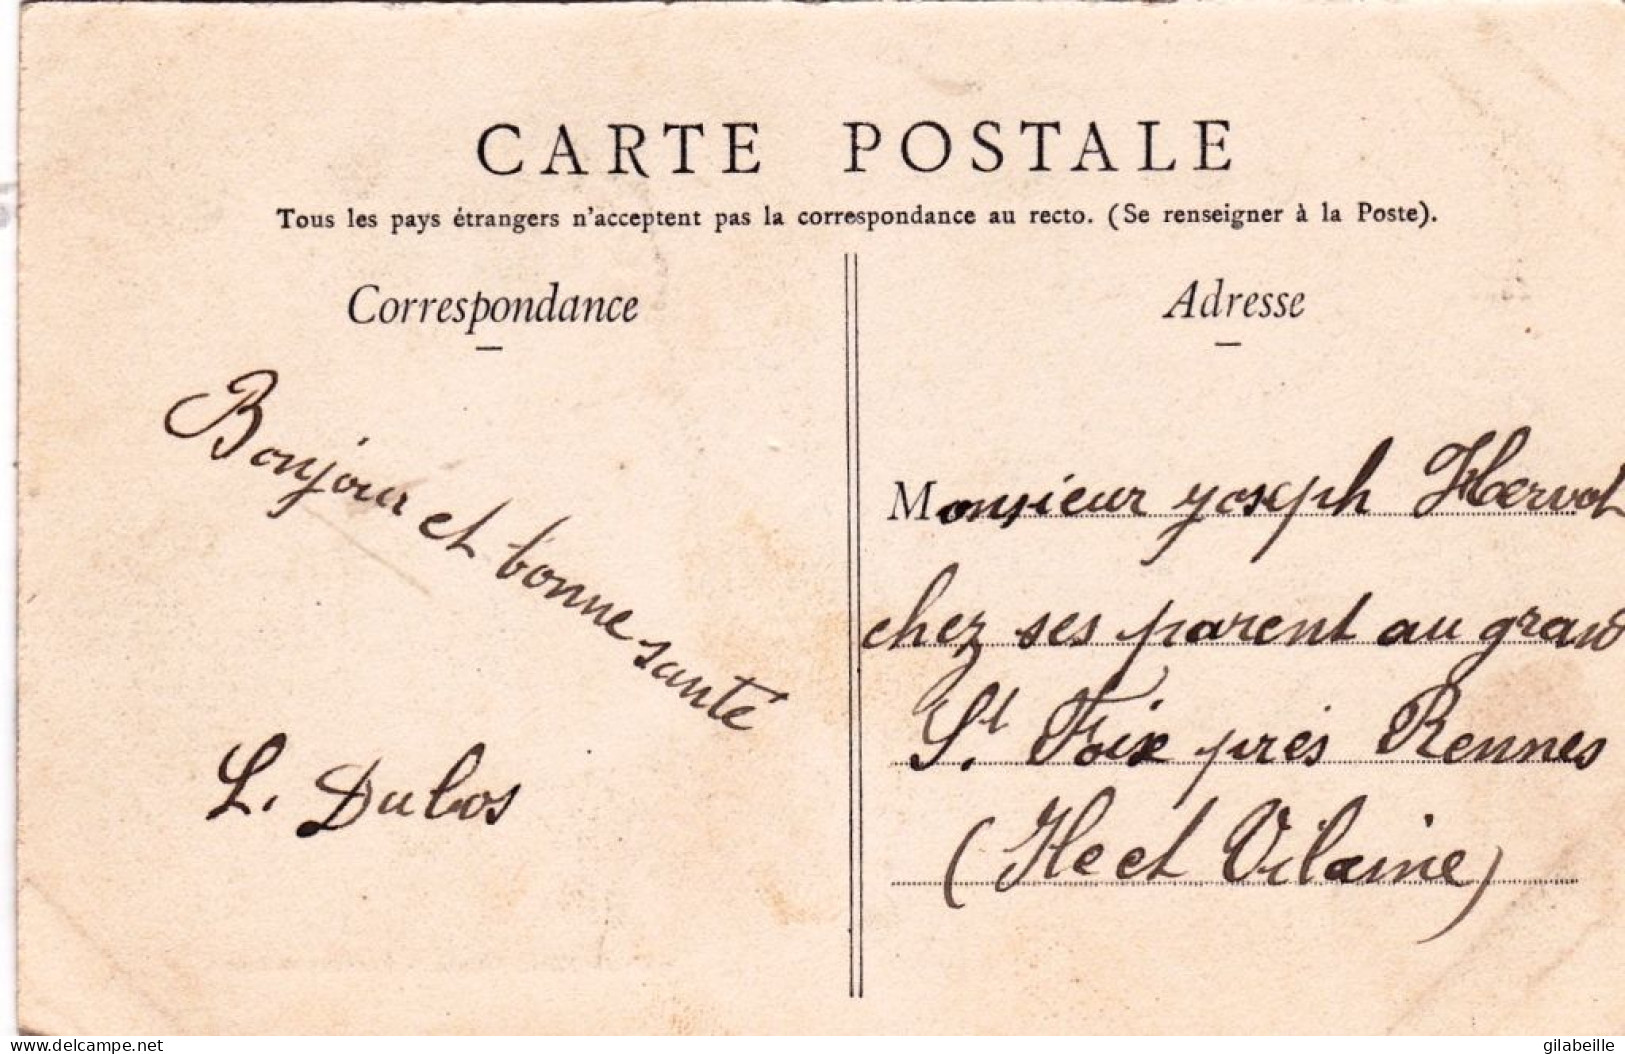 CARTE POSTALE
Tous les pays étrangers n'acceptent pas la correspondance au recto. (Se renseigner à la Poste).
Correspondance
Bonjour et bonne santé
L. Dubos
Adresse
Monsieur joseph Hervot
chez ses parent au grand
St. Foix près Rennes
(Ile et Vilaine)
www.delcampe.net
gilabeille